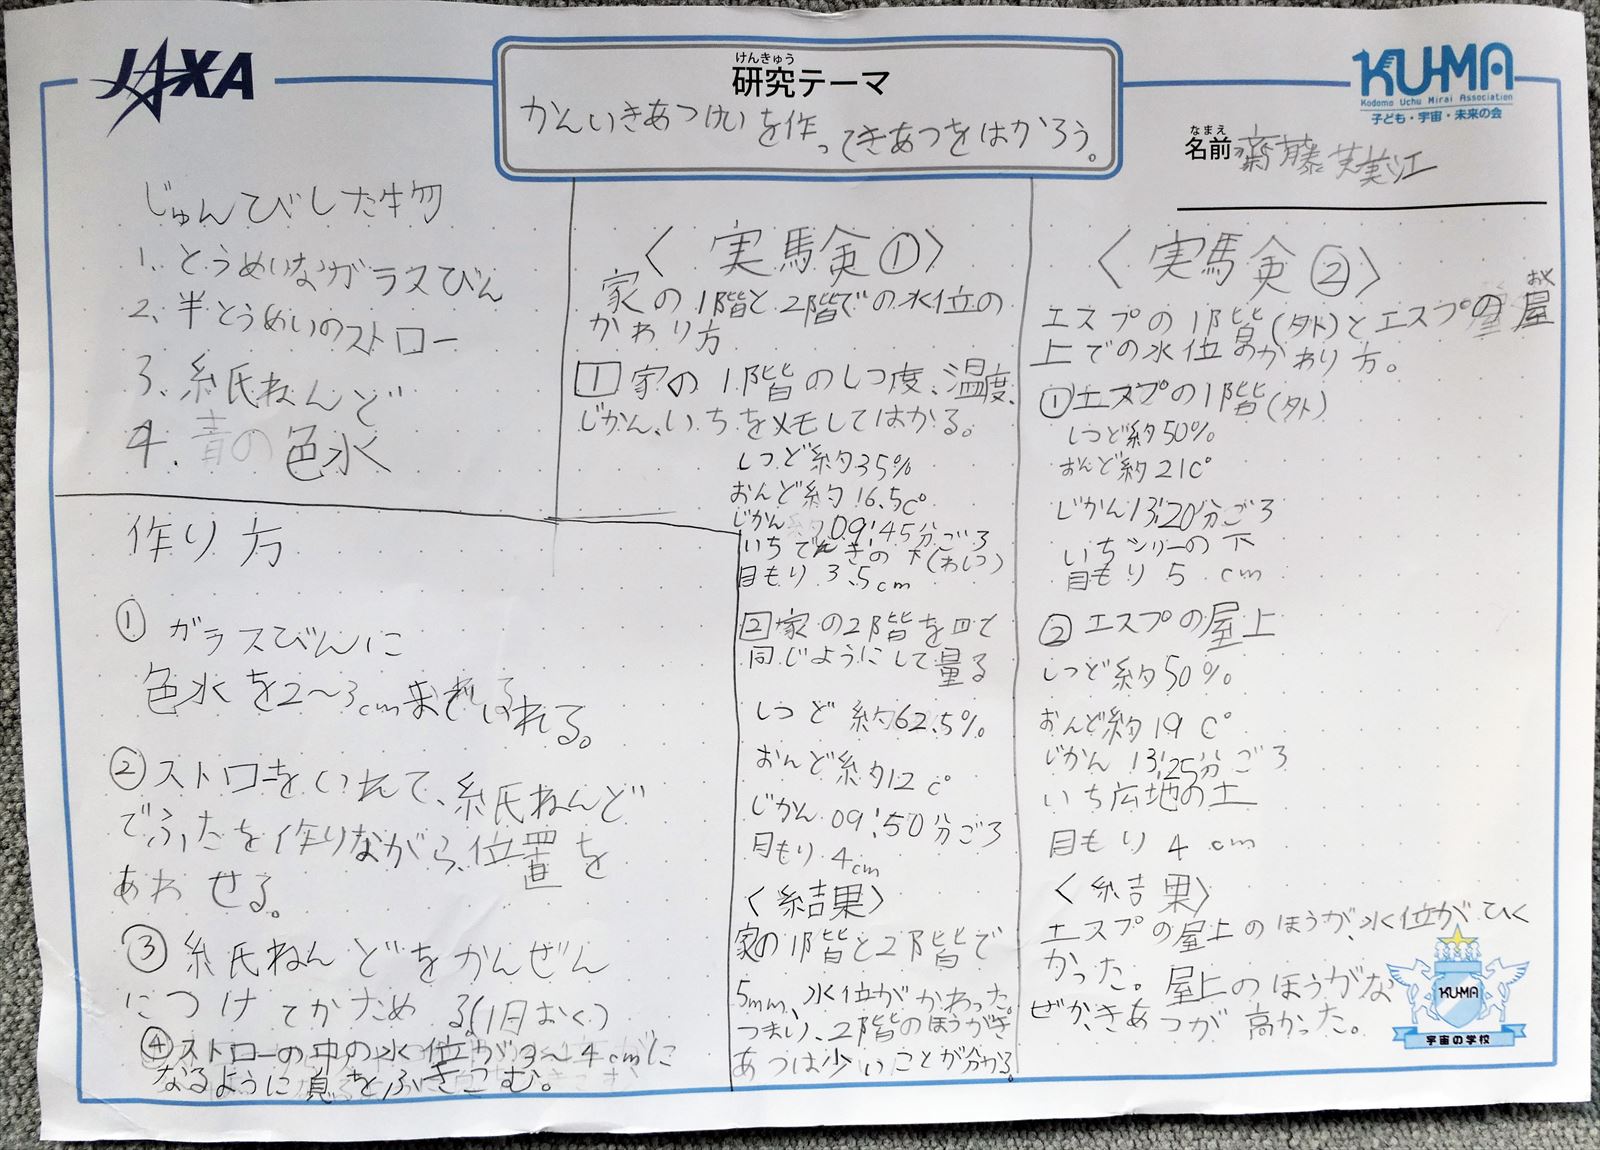 JAXA
けんきゅう
研究テーマ
かんいきあつけいを作ってきあつをはかろう。
KU-MA
Kodomo Uchu Mirai Association
子ども・宇宙・未来の会
なまえ
名前 齋藤芙美江
じゅんびした物
1、とうめいなガラスびん
2、半とうめいのストロー
3、紙ねんど
4、青の色水
作り方
① ガラスびんに
色水を2〜3cmまでいれる。
② ストローをいれて、紙ねんど
でふたを作りながら、位置を
あわせる。
③ 紙ねんどをかんぜん
につけてかためる(1日おく)
④ストローの中の水位が3〜4cmに
なるように息をふきこむ。
〈実験①〉
家の1階と2階での水位の
かわり方
1 家の1階のしつ度、温度、
じかん、いちをメモしてはかる。
しつど約35%
おんど約16.5C°
じかん 09:45分ごろ
いちでんきの下(わしつ)
目もり 3.5cm
2 家の2階を回て
同じようにして量る
しつど 約62.5%
おんど約12C°
じかん 09:50分ごろ
目もり 4cm
〈結果〉
家の1階と2階で
5mm、水位がかわった。
つまり、2階のほうがき
あつは少いことが分かる。
〈実験②〉
おく
エスプの1階(外)とエスプの屋
上での水位のかわり方。
①エスプの1階(外)
しつど約50%
おんど約21C°
じかん13:20分ごろ
いちツリーの下
目もり 5cm
② エスプの屋上
しつど約50%
おんど約19C°
じかん 13:25分ごろ
いち広地の土
目もり 4cm
〈結果〉
エスプの屋上のほうが、水位がひく
かった。屋上のほうがな
ぜか、きあつが高かった。
KU-MA
宇宙の学校